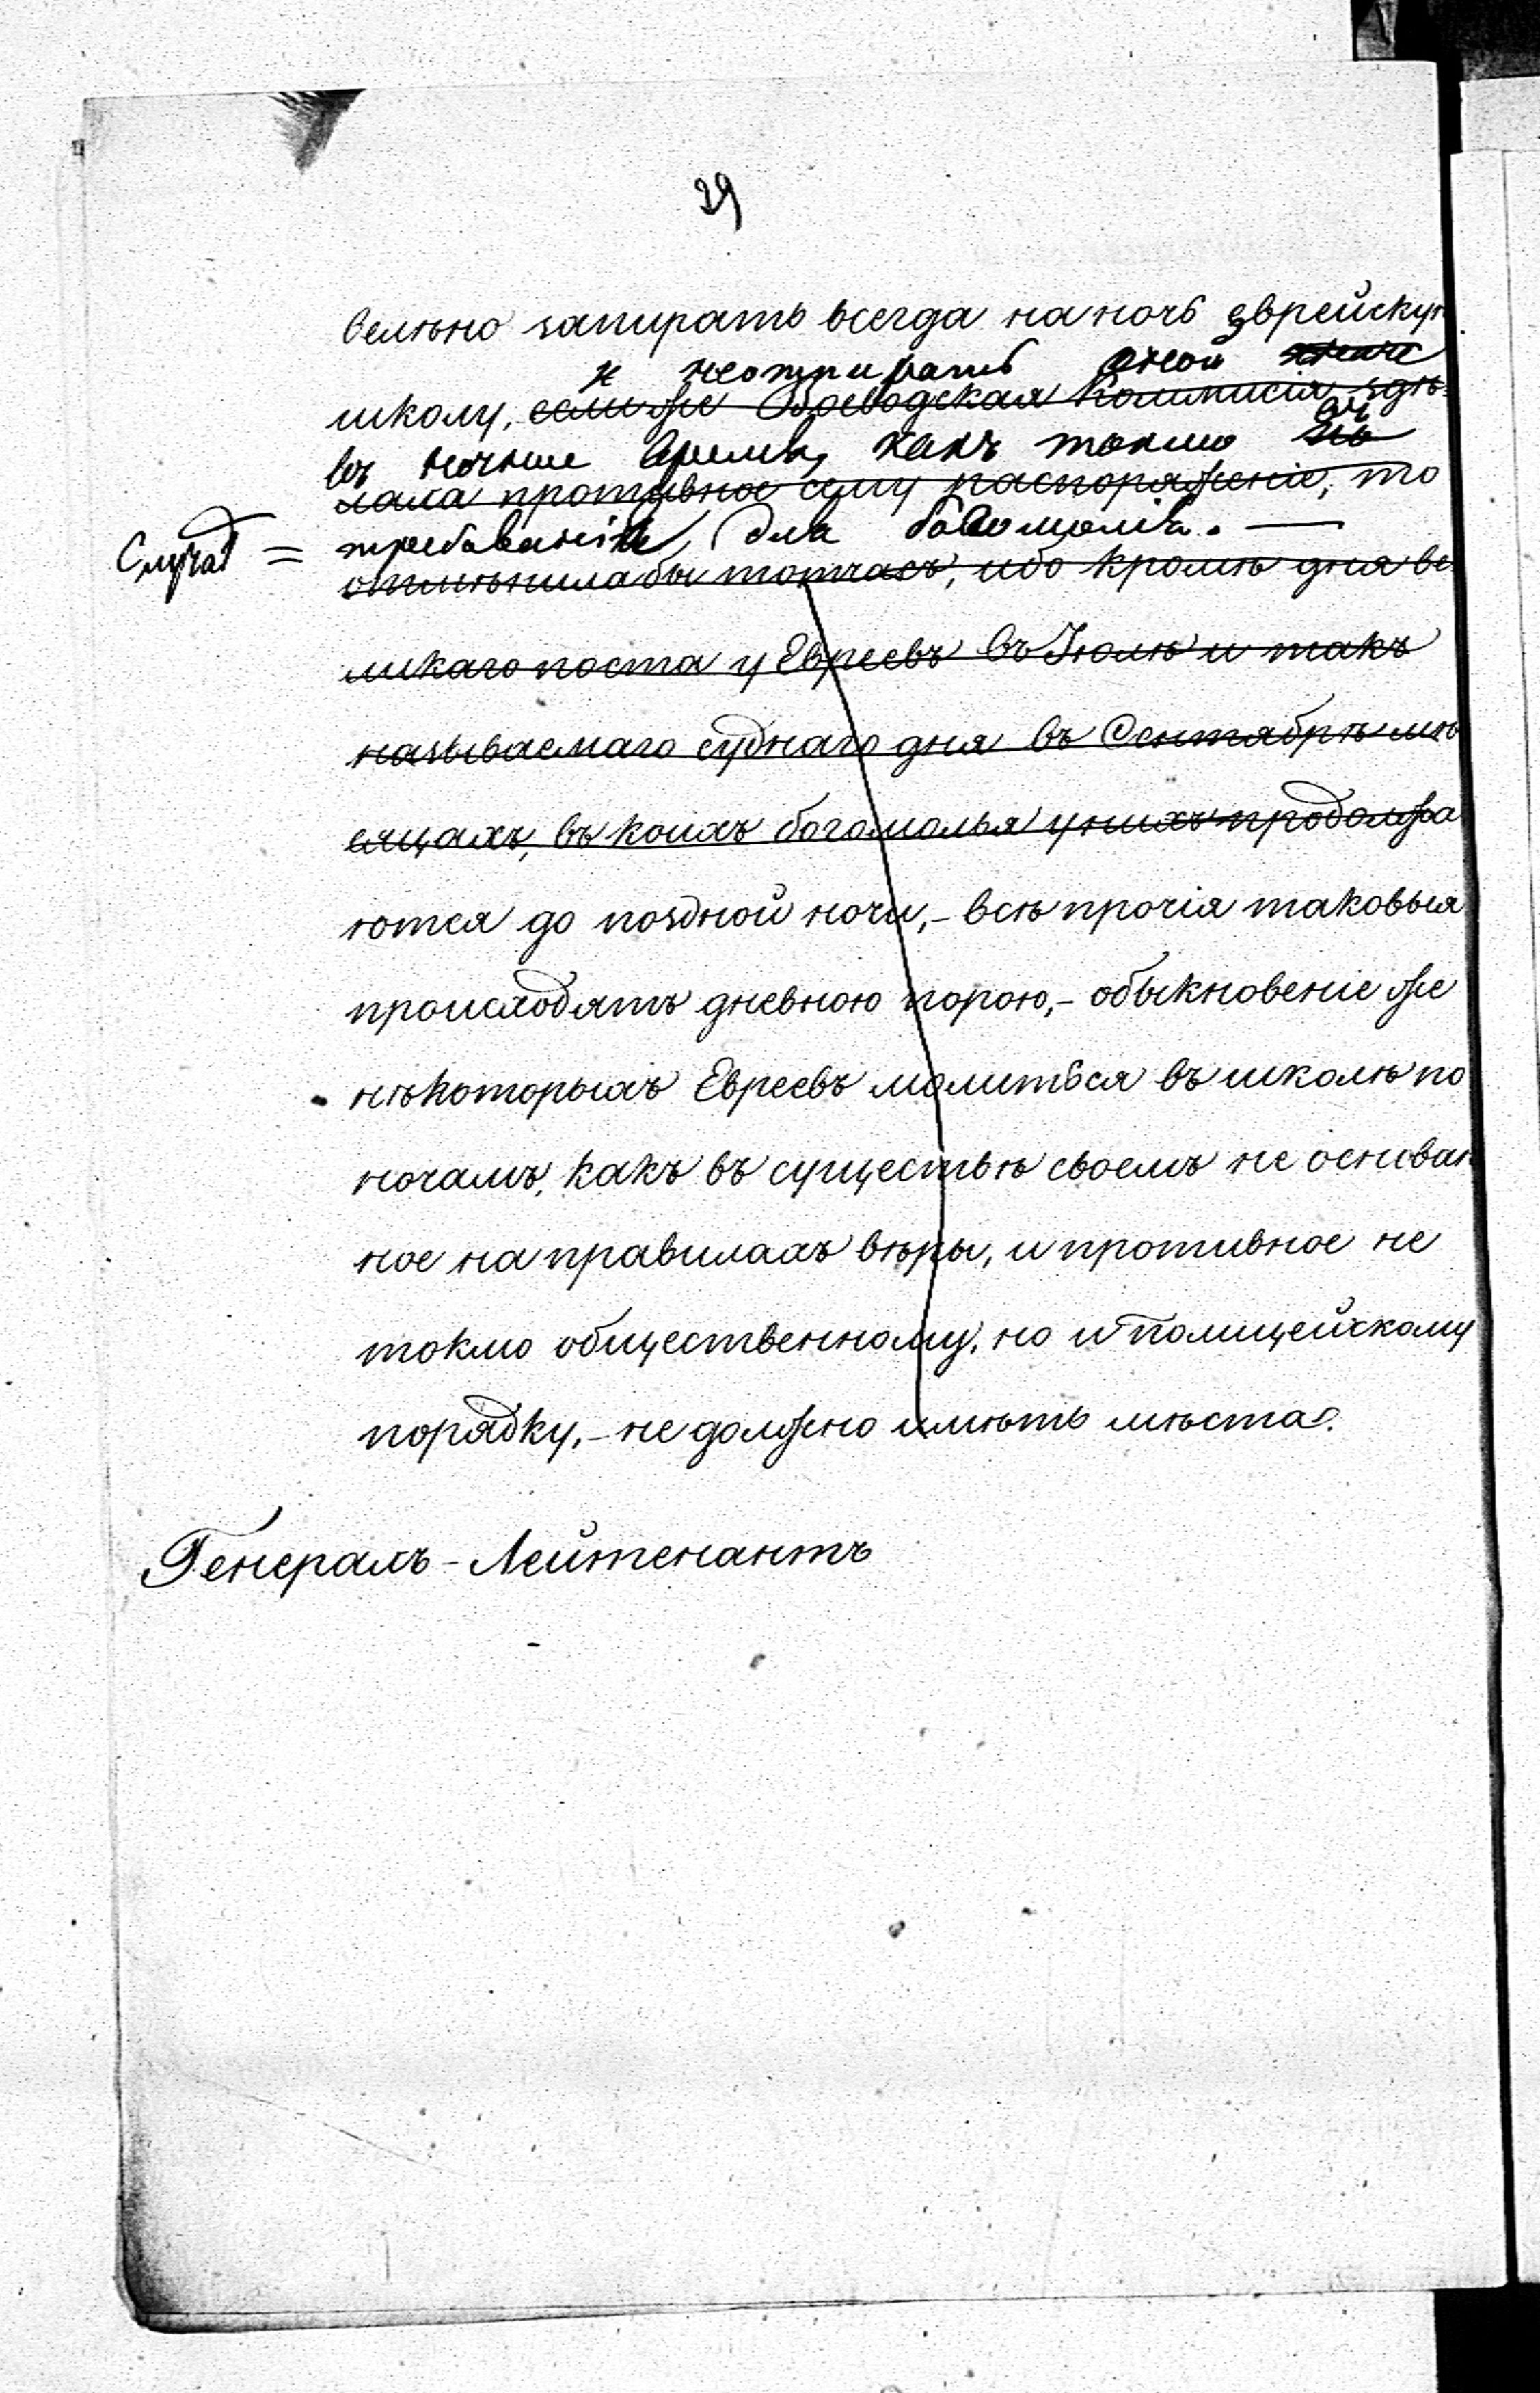 29
велѣно запирать всегда на ночь Еврейскую
и неотпирать оной иначе
школу, если же Воеводская Коммисія здѣ-
въ ночное время, какъ токмо въ
лала противное сему распоряженіе, то
Случаѣ = требованія, для богомолія. —
отмѣнила бы тотчасъ, ибо кромѣ дня ве
ликаго поста у Евреевъ въ Іюлѣ и такъ
называемаго суднаго дня въ Сентябрѣ мѣ
сяцахъ, въ коихъ богомолья у нихъ продолжа
ются до поздной ночи, - всѣ прочія таковыя
происходятъ дневною порою, - обыкновеніе же
нѣкоторыхъ Евреевъ молиться въ школѣ по
ночамъ, какъ въ существѣ своемъ не основан
ное на правилахъ вѣры, и противное не
токмо общественному, но и полицейскому
порядку, - не должно имѣть мѣста.
Генералъ-Лейтенантъ